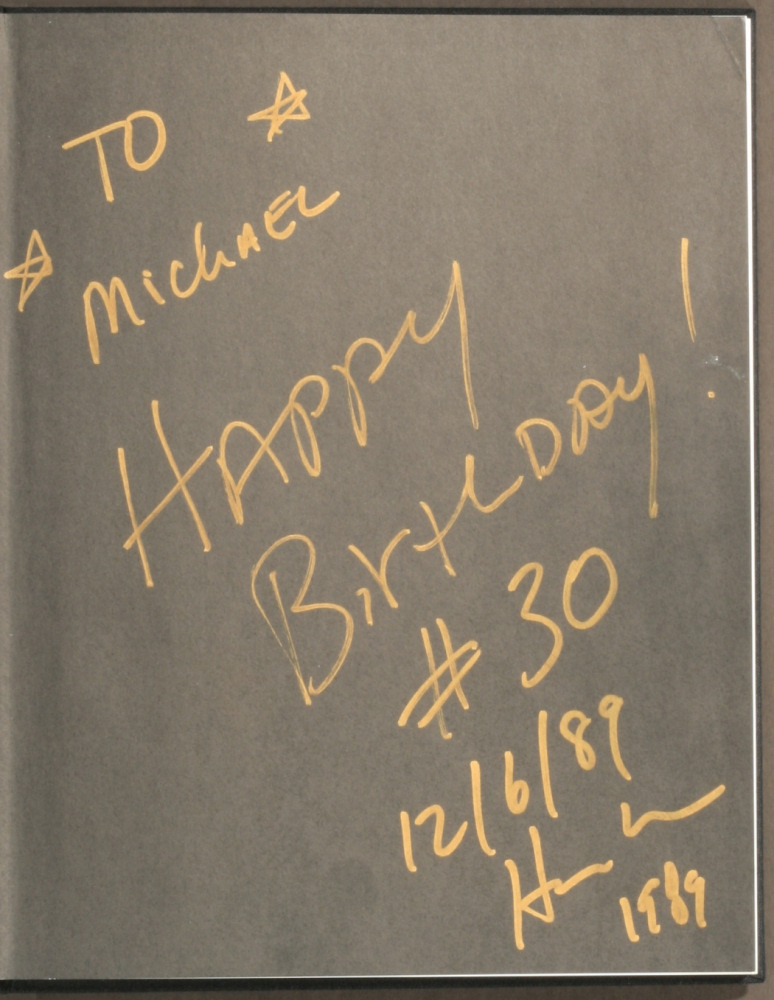 TO
MichAEL
HAPPY
BirthDAY!
# 30
12/6/89
1989